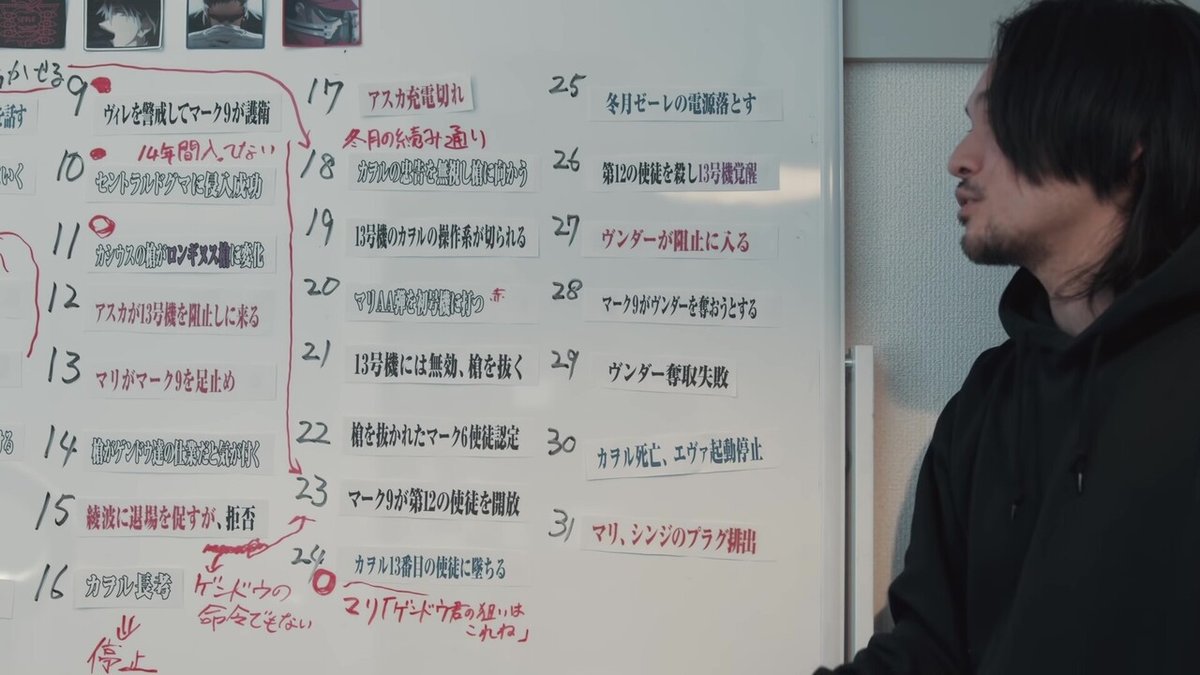 かせる
を話す
いく
9
ヴィレを警戒してマーク9が護衛
10
14年間入ってない
セントラルドグマに侵入成功
11
カシウスの槍がロンギヌス槍に変化
12
アスカが13号機を阻止しに来る
13
マリがマーク9を足止め
14
槍がゲンドウ達の仕業だと気が付く
15
綾波に退場を促すが、拒否
16
カヲル長考
停止
ゲンドウの
命令でもない
17
アスカ充電切れ
冬月の読み通り
18
カヲルの忠告を無視し槍に向かう
19
13号機のカヲルの操作系が切られる
20
マリAA弾を初号機に打つ
赤
21
13号機には無効、槍を抜く
22
槍を抜かれたマーク6使徒認定
23
マーク9が第12の使徒を開放
24
カヲル13番目の使徒に墜ちる
マリ「ゲンドウ君の狙いは
これね」
25
冬月ゼーレの電源落とす
26
第12の使徒を殺し13号機覚醒
27
ヴンダーが阻止に入る
28
マーク9がヴンダーを奪おうとする
29
ヴンダー奪取失敗
30
カヲル死亡、エヴァ起動停止
31
マリ、シンジのプラグ排出